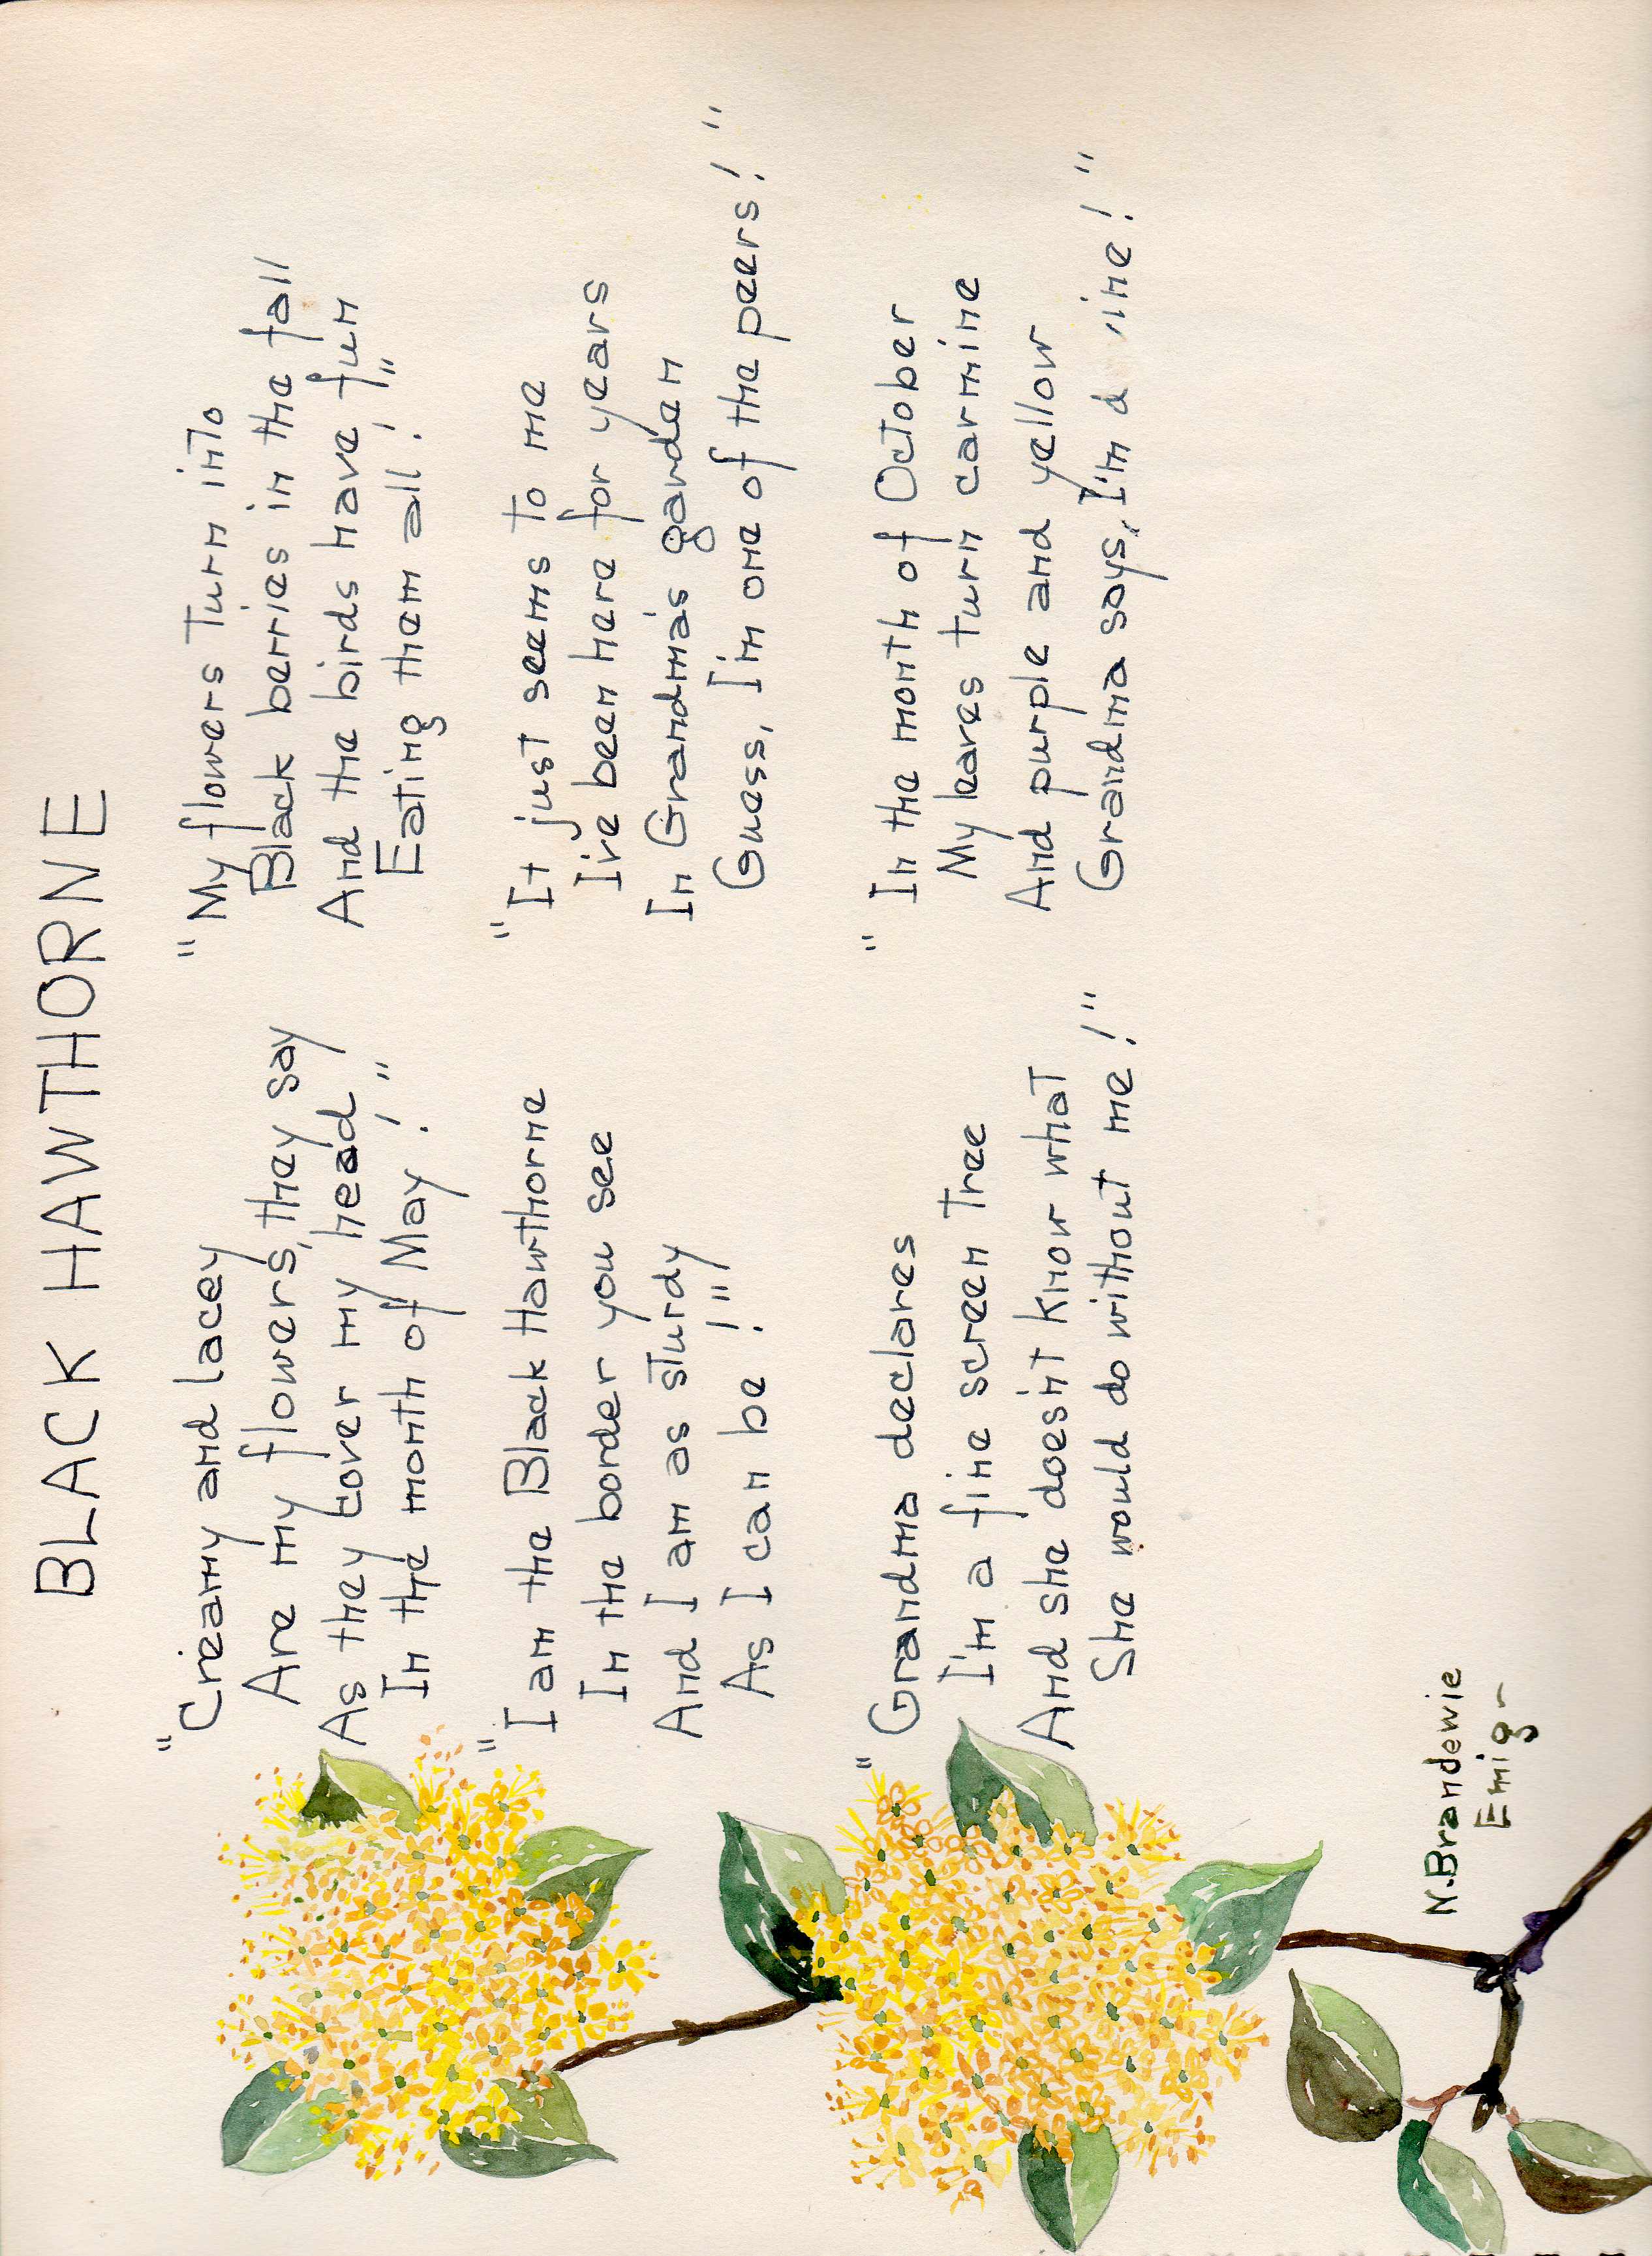 BLACK HAWTHORNE
"Creamy and lacey
Are my flowers, they say
As they cover my head
In the month of May!"
"I am the Black Hawthorne
In the border you see
And I am as sturdy
As I can be!"
"Grandma declares
I'm a fine screen tree
And she doesn't know what
She would do without me!"
"My flowers turn into
Black berries in the fall
And the birds have fun
Eating them all!"
"It just seems to me
I've been here for years
In Grandma's garden
Guess, I'm one of the peers!"
"In the month of October
My leaves turn carmine
And purple and yellow
Grandma says, I'm d vine!"
N. Brandewie
Emig